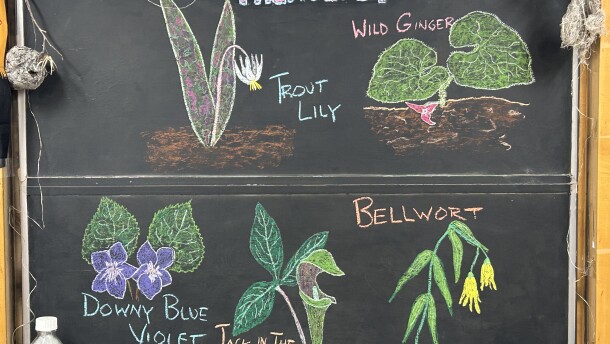 WILD GINGER
TROUT
LILY
BELLWORT
DOWNY BLUE
VIOLET
JACK IN THE